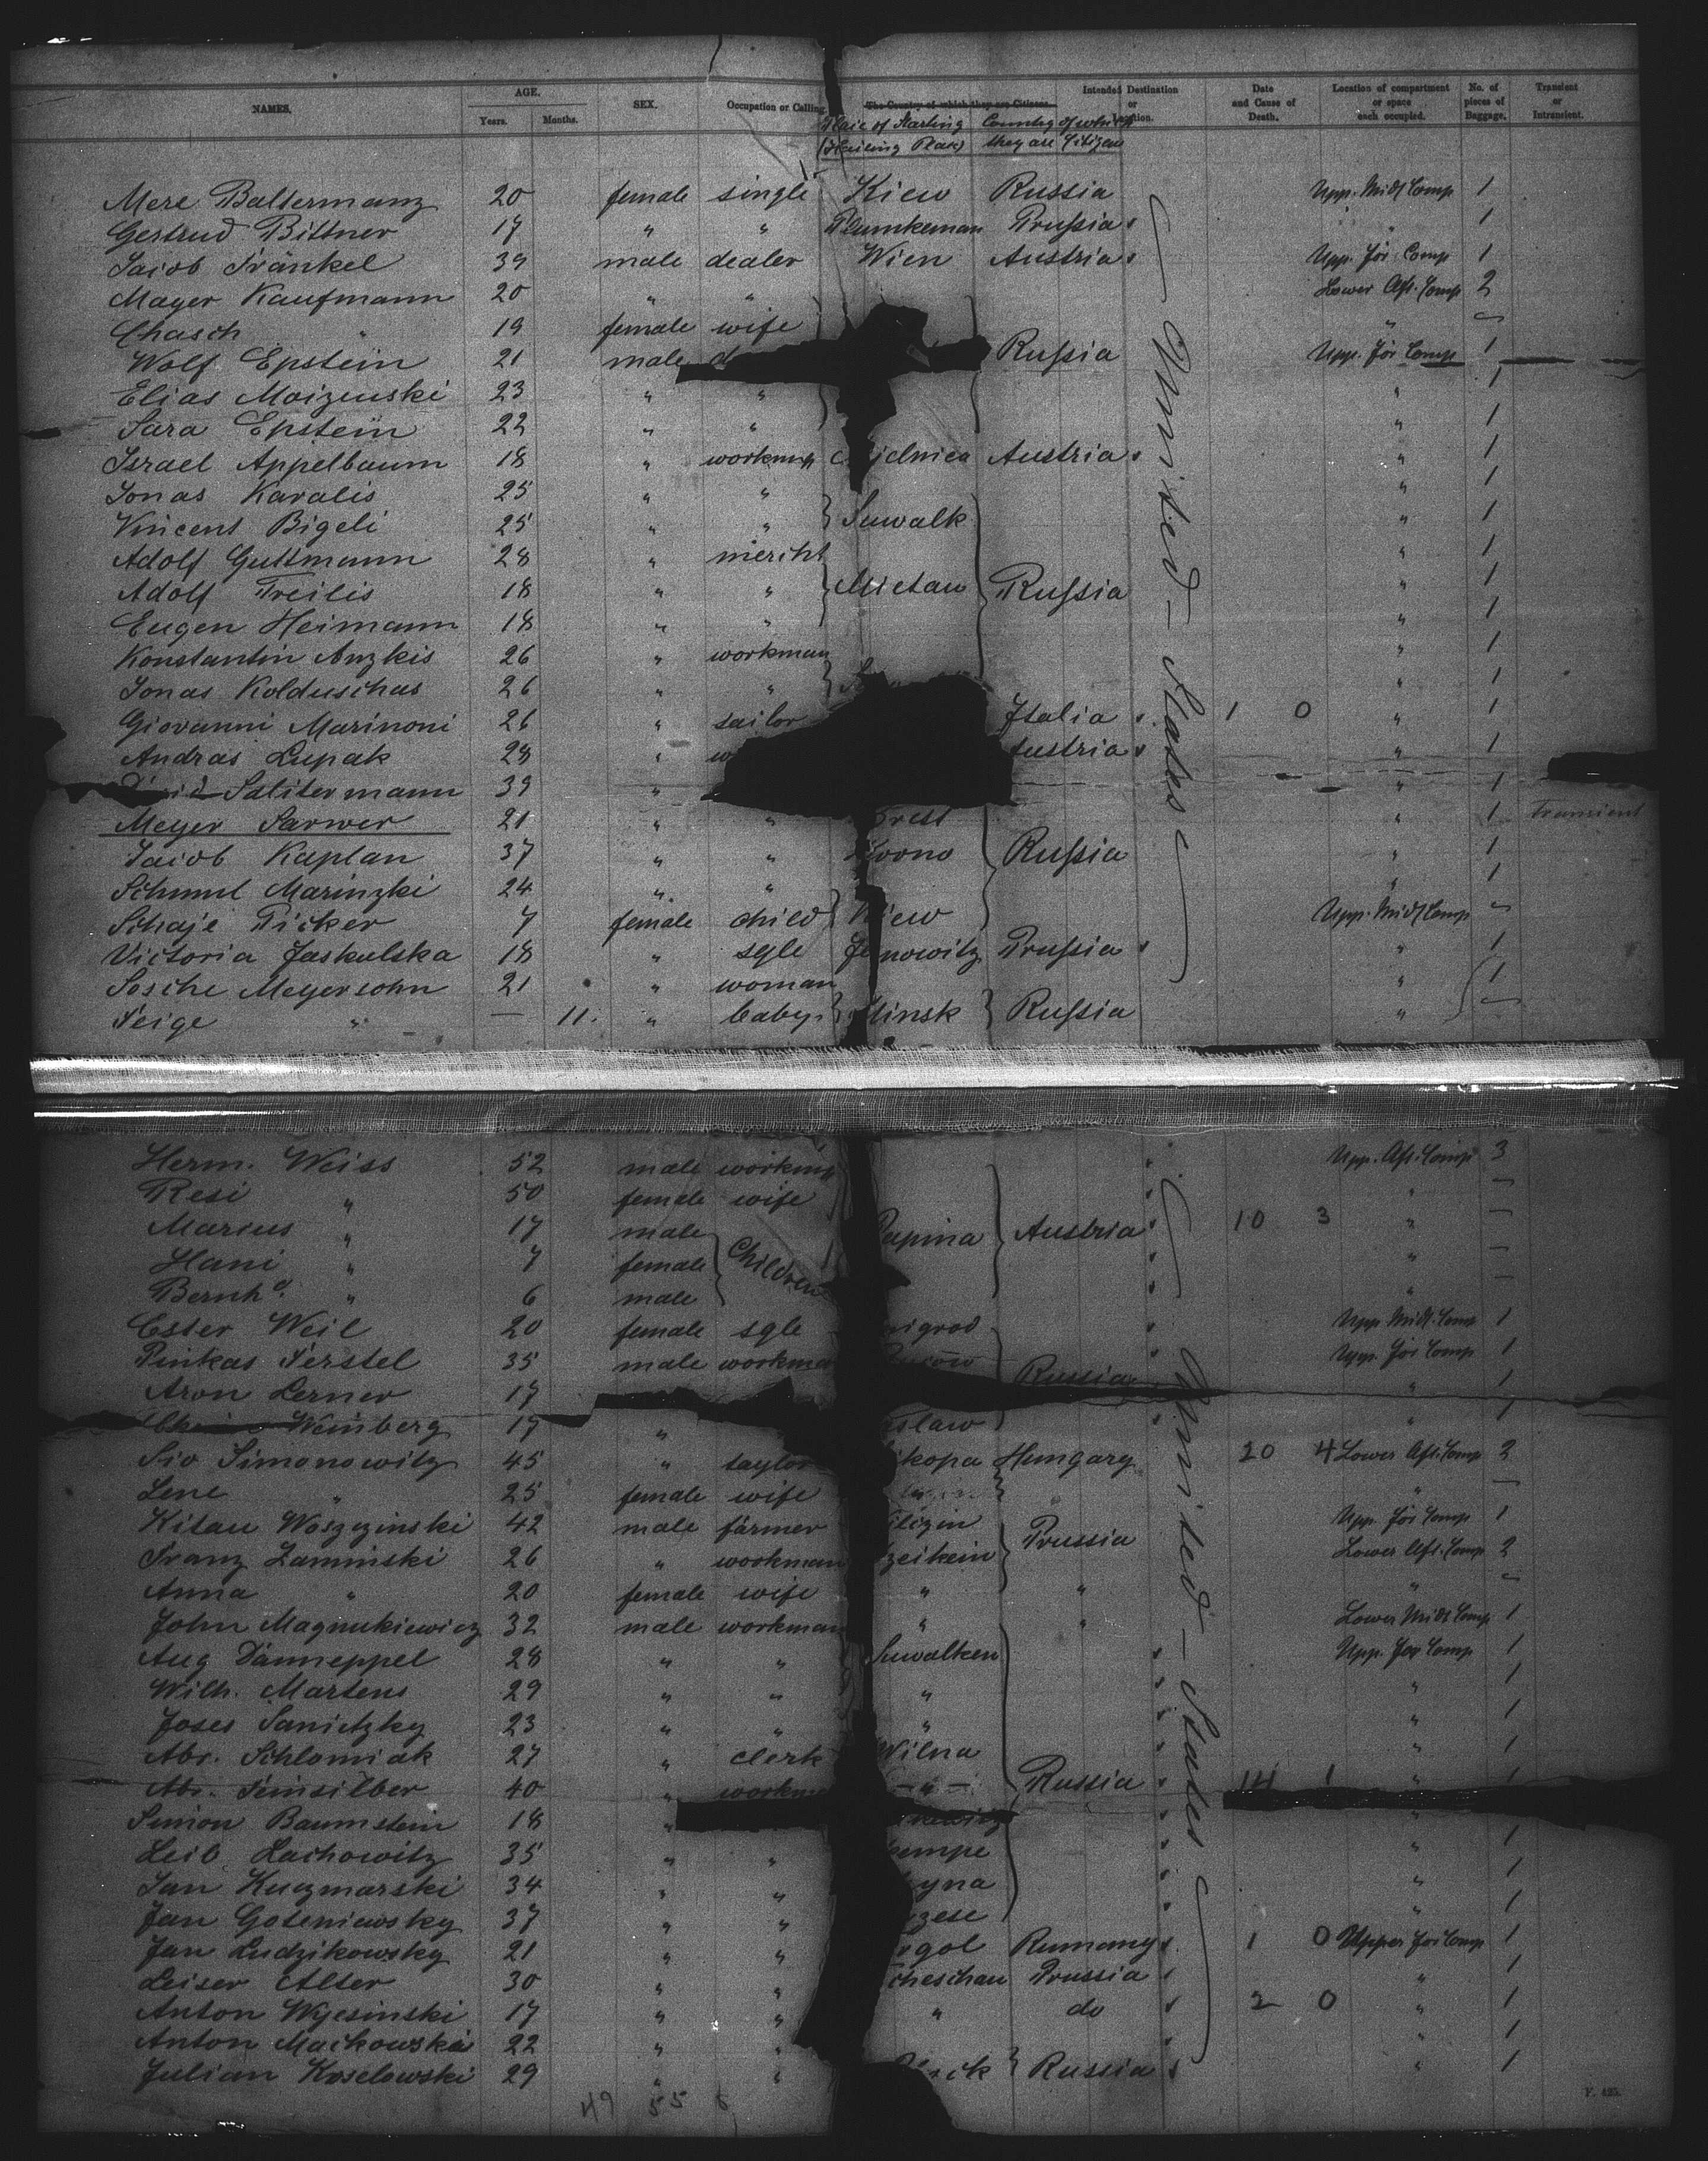 NAMES. AGE. SEX. Occupation or Calling. The Country of which they are Citizens. Intended Destination or Location. Date and Cause of Death. Location of compartment or space each occupied. No. of pieces of Baggage. Transient or Intransient.
Years. Months. Place of Starting Country of which
they are Citizen
Mere Baltermanz 20 female single Kiew Russia Upp. Midl Comp 1
Gertrud Bittner 17 " " Prussia 1
Jacob Fränkel 39 male dealer Wien Austria Upp. For Comp 1
Mayer Kaufmann 20 " " Lower Aft. Comp 2
Chasch " 19 female wife "
Wolf Epstein 21 male Russia Upp. For Comp 1
Elias Moizenski 23 " " " 1
Sara Epstein 22 " " " 1
Israel Appelbaum 18 " workman Austria " 1
Jonas Karalis 25 " " " 1
Vincent Bigeli 25 " " Suwalk " 1
Adolf Guttmann 28 " mercht " 1
Adolf Freilis 18 " " Mietau Russia " 1
Eugen Heimann 18 " " " 1
Konstantin Anzkis 26 " workman " 1
Jonas Kolduschas 26 " " " 1
Giovanni Marinoni 26 " sailor Italia 1 0 " 1
Andras Lupak 28 " Austria " 1
Salitermann 39 " " 1
Meyer Sarwer 21 " " Brest " 1 Transient
Jacob Kaplan 37 " " Kovno Russia " 1
Schmul Marinzki 24 " " " 1
Schaje Picker 7 female child Kiew Upp. Midl Comp
Victoria Jaskulska 18 " sgle Janowitz Prussia " 1
Sosche Meyersohn 21 " woman " 1
Feige " — 11. " baby Minsk Russia " —
United – States
Herm. Weiss 52 male workman Upp. Aft. Comp 3
Resi " 50 female wife " —
Marcus " 17 male Children Papina Austria 10 3 " —
Hani " 7 female " —
Bernhd. " 6 male —
Ester Weil 20 female sgle Upp Midl. Comp 1
Pinkas Ferstel 35 male workman Upp. For Comp 1
Aron Lerner 17 Russia " 1
Weinberg 17 " " 1
Siv Simonowitz 45 " taylor Hungary 20 4 Lower Aft. Comp 2
Lene " 25 female wife " " —
Kitau Woszczinski 42 male farmer Prussia Upp. For Comp 1
Franz Zaminski 26 " workman Lower Aft. Comp 2
Anna " 20 female wife " " "
John Magnukiewicz 32 male workman " " Lower Midl Comp 1
Aug Danneppel 28 " " Suwalken Upp. For Comp 1
Wilh. Martens 29 " " " " 1
Joses Sanietzky 23 " " " " 1
Abr. Schlomiak 27 " clerk Wilna " 1
Abr. Feinsilber 40 " workman " Russia 14 1 " 1
Simon Baumstein 18 " "
Leib Lachowitz 35 " " " 1
Jan Kuczmarski 34 " " " 1
Jan Goteniewsky 37 " " " 1
Jan Ludzikowsky 21 " " Rumany 1 0 Upper For Comp 1
Leiser Alter 30 " " Prussia " 1
Anton Wyesinski 17 " " " do 2 0 " 1
Anton Mackowski 22 " " " 1
Julian Koselowski 29 " " Russia " 1
United – States
49 55 6
F. 425.